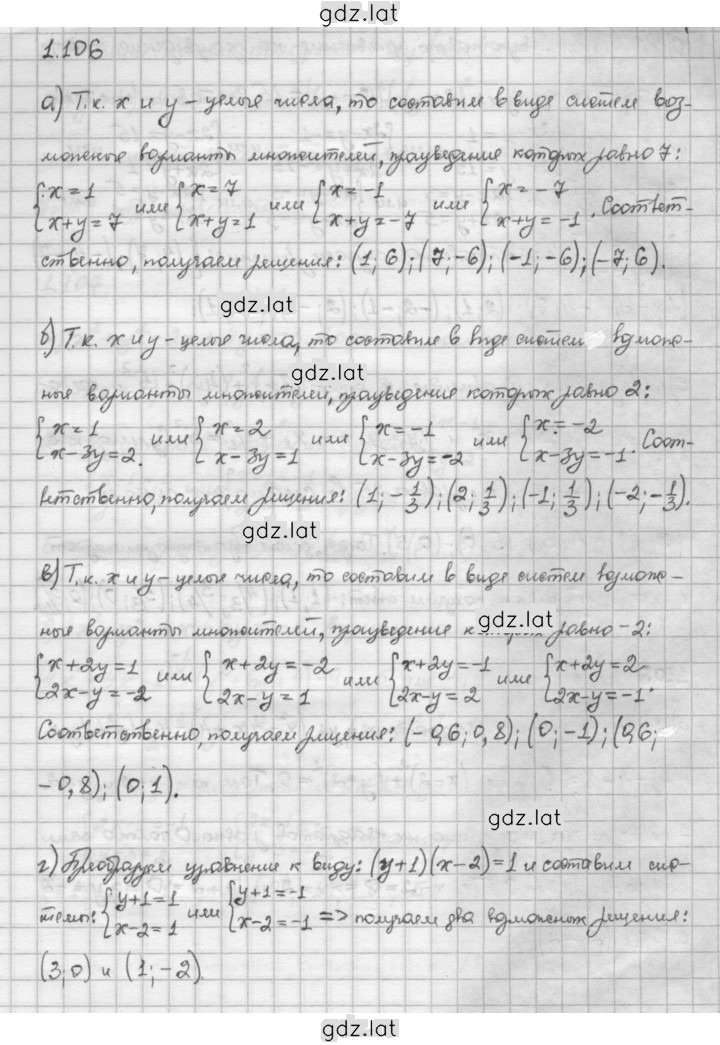 gdz.lat
1.106
а) Т.к. x и y – целые числа, то составим в виде систем воз-
можные варианты множителей, произведение которых равно 7:
{x=1 x+y=7 или {x=7 x+y=1 или {x=-1 x+y=-7 или {x=-7 x+y=-1. Соответ-
ственно, получаем решения: (1; 6); (7; -6); (-1; -6); (-7; 6).
gdz.lat
б) Т.к. x и y – целые числа, то составим в виде систем возмож-
gdz.lat
ные варианты множителей, произведение которых равно 2:
{x=1 x-3y=2. или {x=2 x-3y=1 или {x=-1 x-3y=-2 или {x=-2 x-3y=-1. Соот-
ветственно, получаем решения: (1; -1/3); (2; 1/3); (-1; 1/3); (-2; -1/3).
gdz.lat
в) Т.к. x и y – целые числа, то составим в виде систем возмож-
gdz.lat
ные варианты множителей, произведение которых равно -2:
{x+2y=1 2x-y=-2 или {x+2y=-2 2x-y=1 или {x+2y=-1 2x-y=2 или {x+2y=2 2x-y=-1.
Соответственно, получаем решения: (-0,6; 0,8); (0; -1); (0,6;
-0,8); (0; 1).
gdz.lat
г) Преобразуем уравнение к виду: (y+1)(x-2)=1 и составим сис-
темы: {y+1=1 x-2=1 или {y+1=-1 x-2=-1 => получаем два возможных решения:
(3; 0) и (1; -2).
gdz.lat